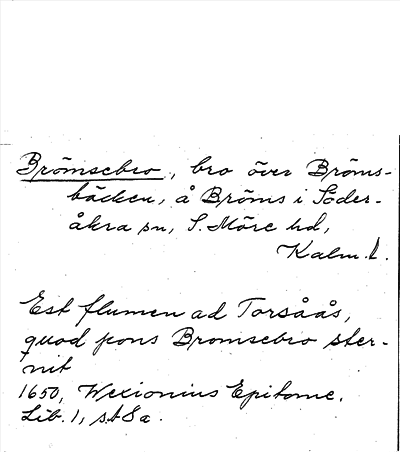 Brömsebro, bro över Bröms-
bäcken, å Bröms i Söder-
åkra sn, S. Möre hd,
Kalm. l.
Est flumen ad Torsåås,
quod pons Bromsebro ster-
nit
1650, Wexionius Epitome.
Lib. 1, s. A 8 a.